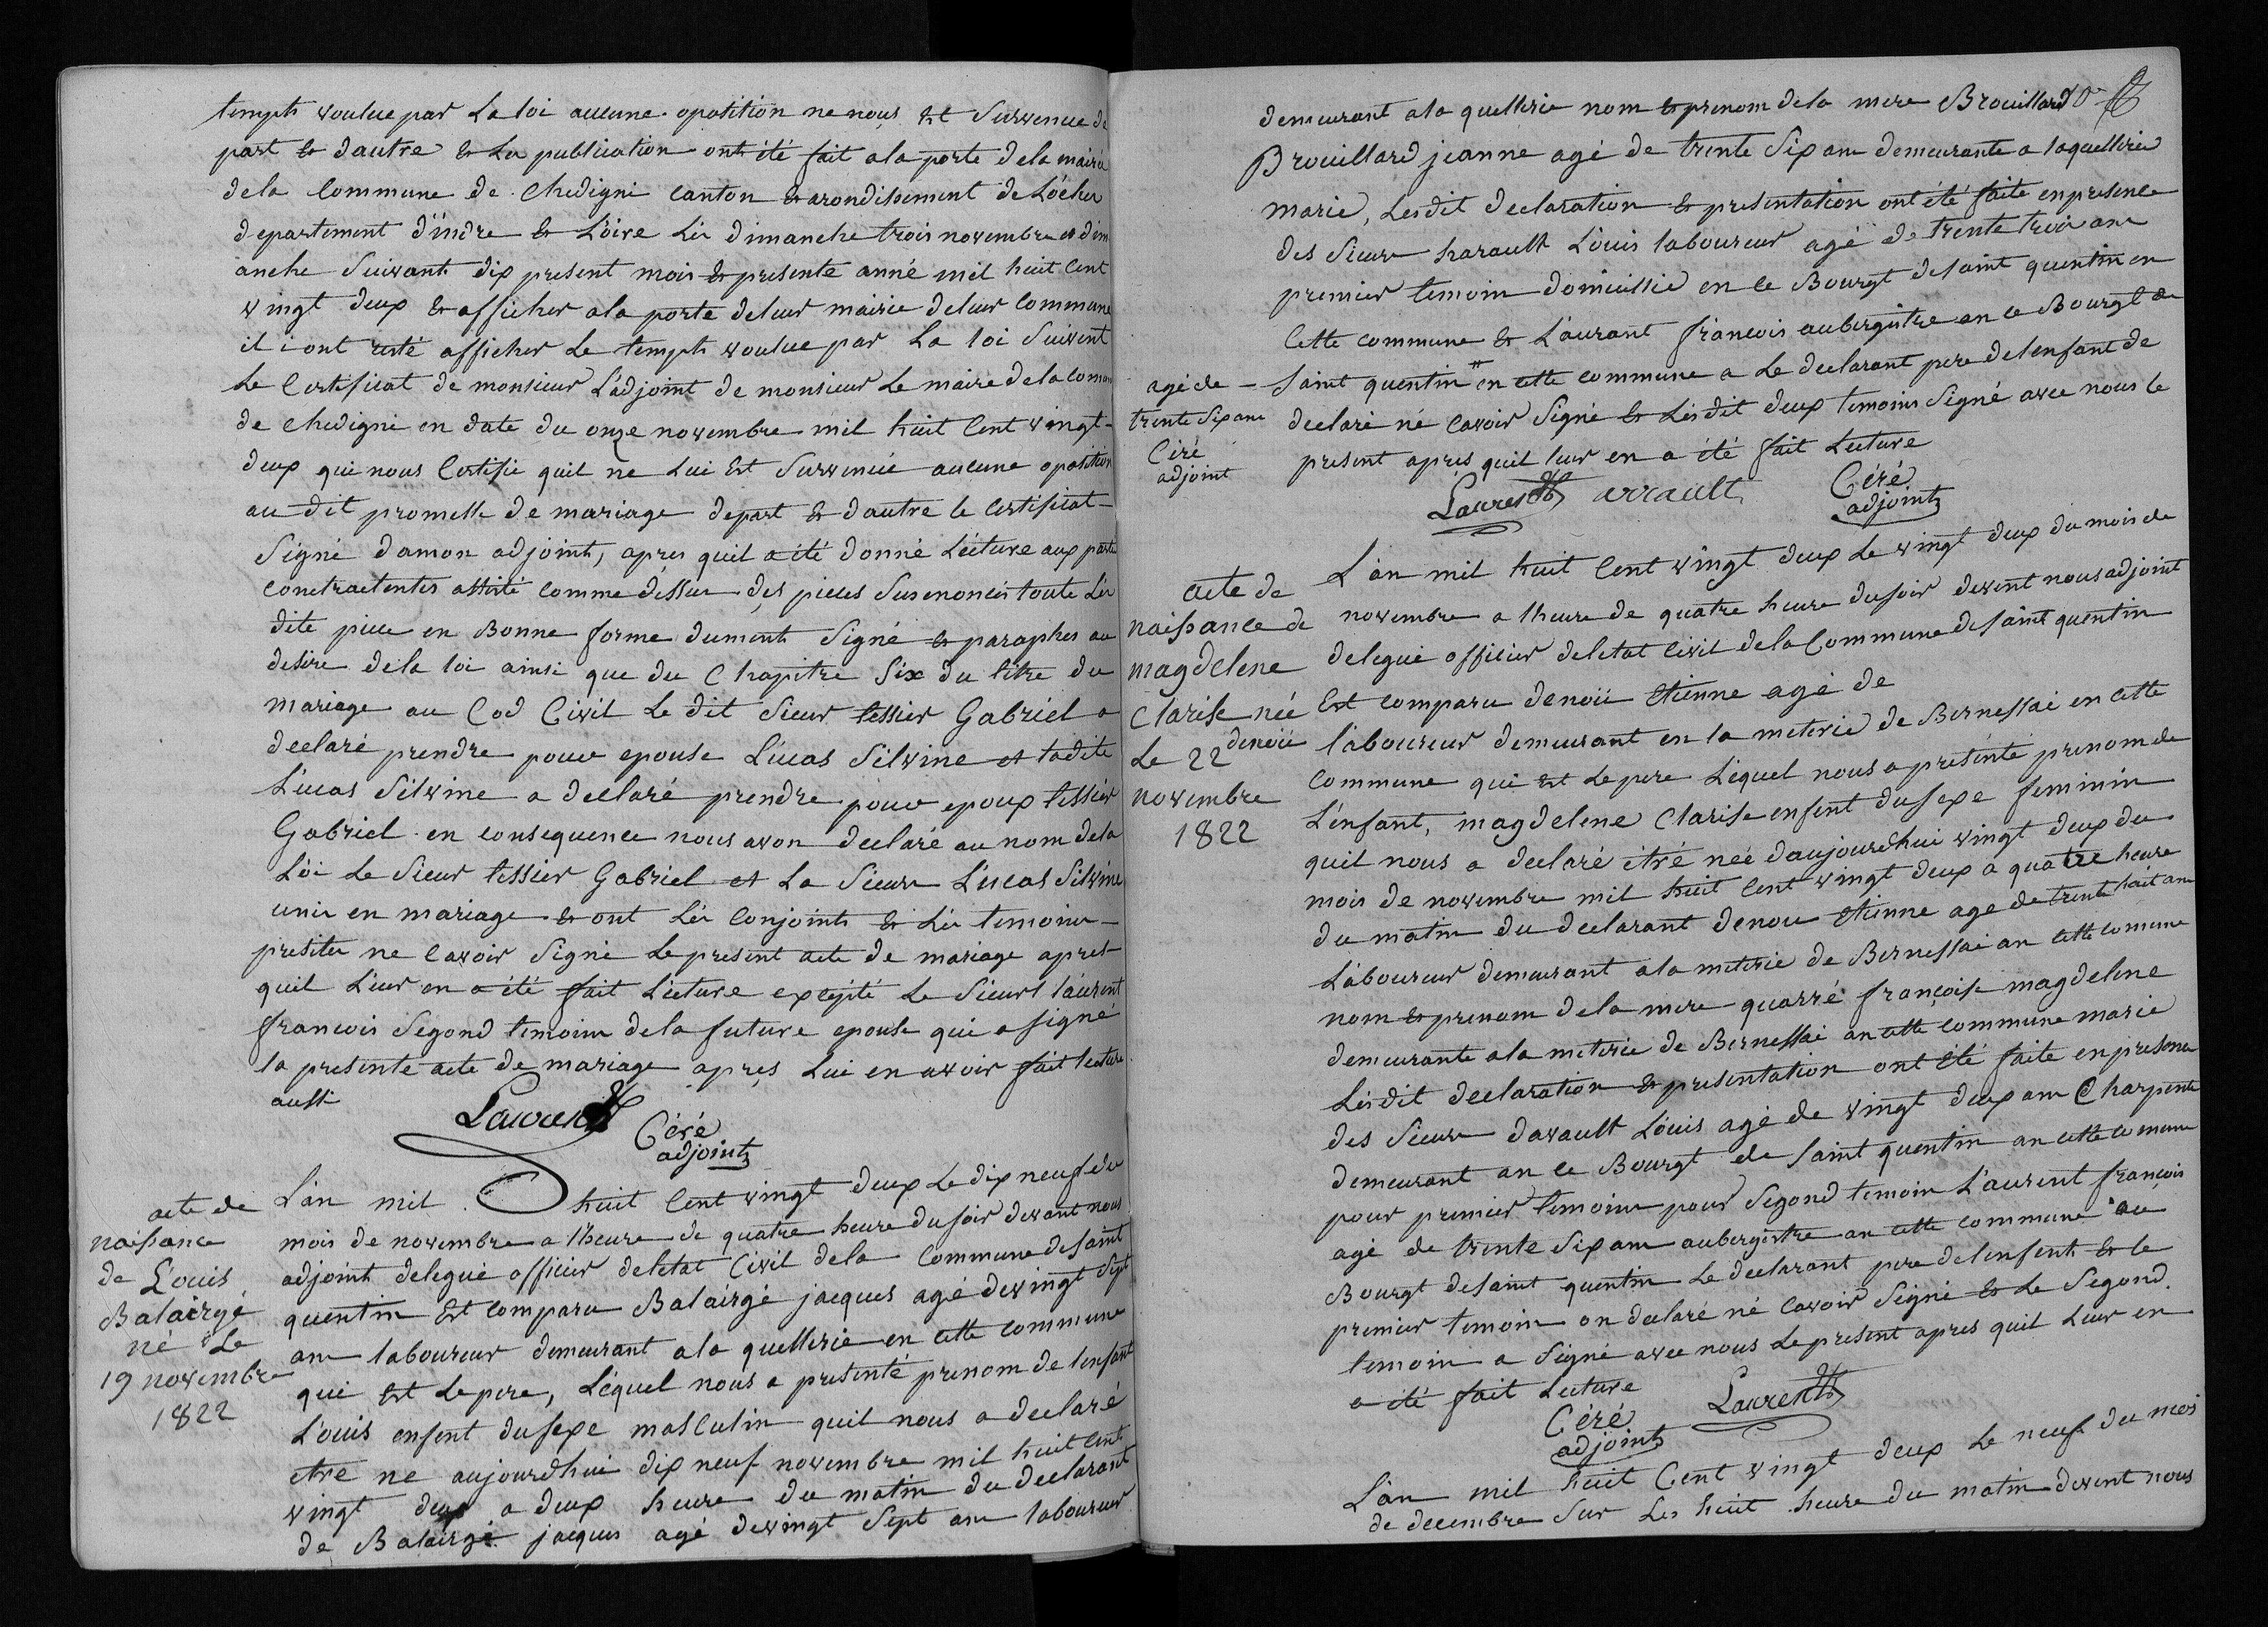 tempts voulue par La loi aucune oposition ne nous Est Survenue de
part & dautre & La publication ont été fait a la porte dela mairie
dela Commune de Chedigni Canton & arondissement de Lôches
departement d'indre & Loire Les dimanche trois novembre et dim
anche Suivant dix present mois & presente anné mil huit Cent
vingt deux & afficher a la porte deleur mairie deleur Commune
il i ont resté afficher Le tempts voulue par La loi Suivent
Le Certificat de monsieur L'adjoint de monsieur Le maire dela Comm
de Chedigni en date du onze novembre mil huit Cent vingt-
deux qui nous Certifie quil ne Lui Est Survenüe aucune oposition
au dit promesse de mariage depart & dautre le Certificat-
Signé damon adjoint, apres quil a été donné Lecture aux parti
contractentes assisté comme dessus des pieces Susenoncés toute Les
dite piece en Bonne forme dument Signé & parapher au
desire dela loi ainsi que du Chapitre Six du titre du
mariage au Cod Civil Le dit Sieur tessier Gabriel a
declaré prendre pour epouse Lucas Silvine et ladite
Lucas Silvine a declaré prendre pour epoux tessier
Gabriel en consequence nous avon declaré au nom dela
Loi Le Sieur tessier Gabriel et La Sieur Lucas Silvine
unis en mariage & ont Les Conjoints & Les temoins-
presiter ne Cavoir Signé Le present acte de mariage apres-
quil Leur en a été fait Lecture exepté Le Sieur laurent
francois Segond temoin dela future epouse qui a signé
la presente acte de mariage apres Lui en avoir fait lecture
aussi
Laurent
Céré
adjoint
acte de
naissance
de Louis
Balairgé
né Le
19 novembre
1822
L'an mil huit Cent vingt deux Le dix neuf du
mois de novembre a lheure de quatre heure du soir devant nous
adjoint delegué officier deletat Civil dela Commune desaint
quentin Est comparu Balairgé jacques agé devingt Sept
ans laboureur demeurant a la quellerie en cette commune
qui Est Le pere, Lequel nous a presenté prenom de lenfant
Louis enfent dusexe masculin quil nous a declaré
etre ne aujourdhui dix neuf novembre mil huit Cent
vingt deux a deux heure du matin du declarant
de Balairgé jacques agé devingt Sept ans laboureur
demeurant a la quellerie nom & prenom dela mere Brouillard
Brouillard jeanne agé de trente Six ans demeurante a laquellerie
marie, Lesdit declaration & presentation ont été faite enpresence
des Sieur harault Louis laboureur agé de trente trois ans
premier temoin domicilié en ce Bourgt desaint quentin en
Cette commune & Laurant francois aubergistre en ce Bourgt de
Saint quentin en cette commune a Le declarant pere delenfant de
agé de
trente Six ans
Céré
adjoint
declaré né Cavoir Signé & Lesdit deux temoins Signé avec nous le
present apres quil leur en a été fait Lecture
Laurent arrault Céré
adjoint
acte de
naissance de
magdelene
Clarise née
denoüe
Le 22
novembre
1822
L'an mil huit Cent vingt deux Le vingt deux du mois de
novembre a lheure de quatre heure dusoir devent nous adjoint
delegué officier deletat Civil dela Commune desaint quentin
Est comparu denoüe Etienne agé de
laboureur demeurant en la meterie de Bernessai en cette
Commune qui est Le pere Lequel nous a presenté prenom de
L'enfant, magdelene Clarise enfent dusexe feminin
quil nous a declaré être née daujourdhui vingt deux du
mois de novembre mil huit Cent vingt deux a quatre heure
du matin du declarant denoue Etienne age de trente huit ans
Laboureur demeurant a la meterie de Bernessai an cette comune
nom & prenom dela mere quarré françoise magdelene
demeurante a la meterie de Bernessai an cette commune marie
Lesdit declaration & presentation ont été faite enpresence
des Sieur davault Louis agé de vingt deux ans Charpente
demeurant an ce Bourgt de Saint quentin an cette comune
pour premier temoin pour Segond temoin Laurent françois
agé de trente Six ans aubergistre an cette commune au
Bourgt desaint quentin Le declarant pere delenfent & le
premier temoin on declaré né Cavoir Signé & Le Segond
temoin a Signé avec nous Le present apres quil Leur en
a été fait Lecture
Céré
adjoint
Laurent
L'an mil huit Cent vingt deux Le neuf du mois
de decembre Sur Les huit heure du matin devent nous